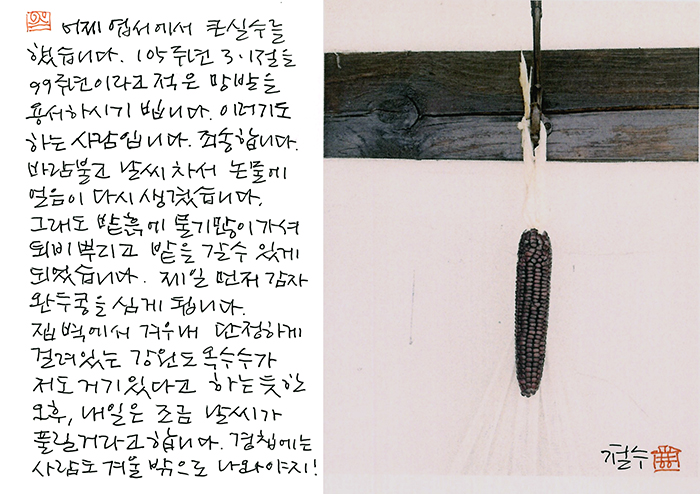 어제 엽서에서 큰실수를
했습니다. 105주년 3·1절을
99주년이라고 적은 망발을
용서하시기 빕니다. 이러기도
하는 사람입니다. 죄송합니다.
바람불고 날씨 차서 논물에
얼음이 다시 생겼습니다.
그래도 밭흙에 물기많이가셔
퇴비 뿌리고 밭을 갈수 있게
되었습니다. 제일 먼저 감자
완두콩을 심게 됩니다.
집 벽에서 겨우내 단정하게
걸려있는 강원도 옥수수가
저도 거기있다고 하는듯한
오후, 내일은 조금 날씨가
풀릴거라고합니다. 경칩에는
사람도 겨울 밖으로 나와야지!
철수